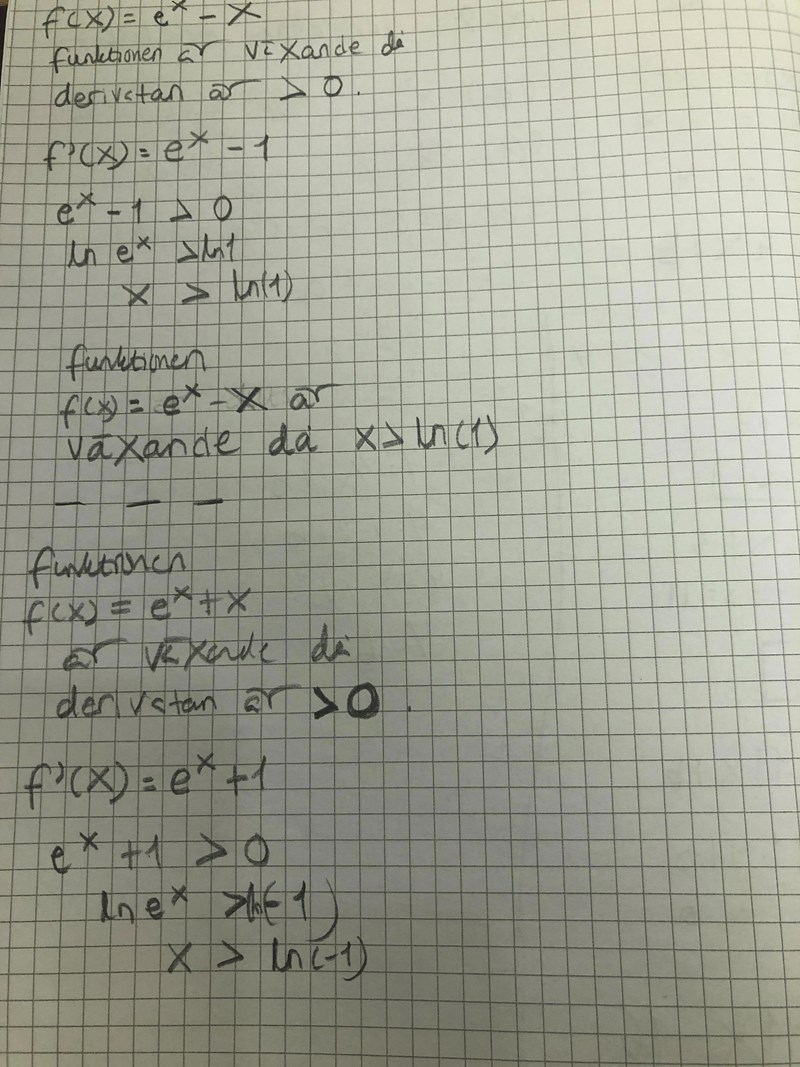 f(x) = e^x - x
funktionen är växande då
derivatan är > 0.
f'(x) = e^x - 1
e^x - 1 > 0
ln e^x > ln1
x > ln(1)
funktionen
f(x) = e^x - x är
växande då x > ln(1)
— — —
funktionen
f(x) = e^x + x
är växande då
derivatan är > 0.
f'(x) = e^x + 1
e^x + 1 > 0
ln e^x > ln(-1)
x > ln(-1)